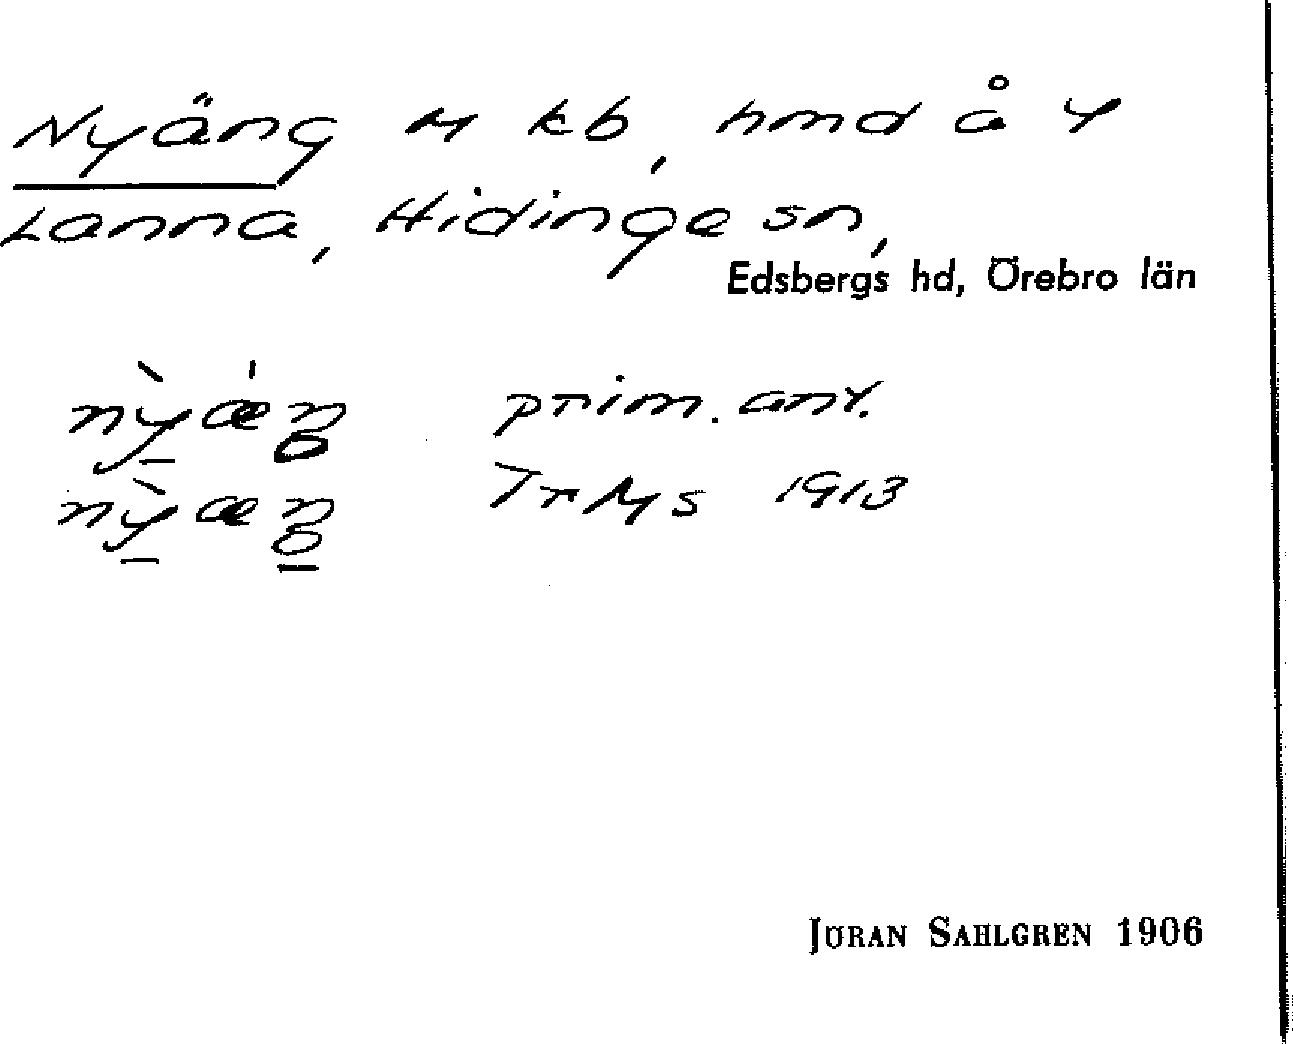 Nyäng M kb, hmd å Y
Lanna, Hidinge sn,
Edsbergs hd, Örebro län
nỳæ̍ŋ prim. ant.
nỳæŋ TrMs 1913
JÖRAN SAHLGREN 1906